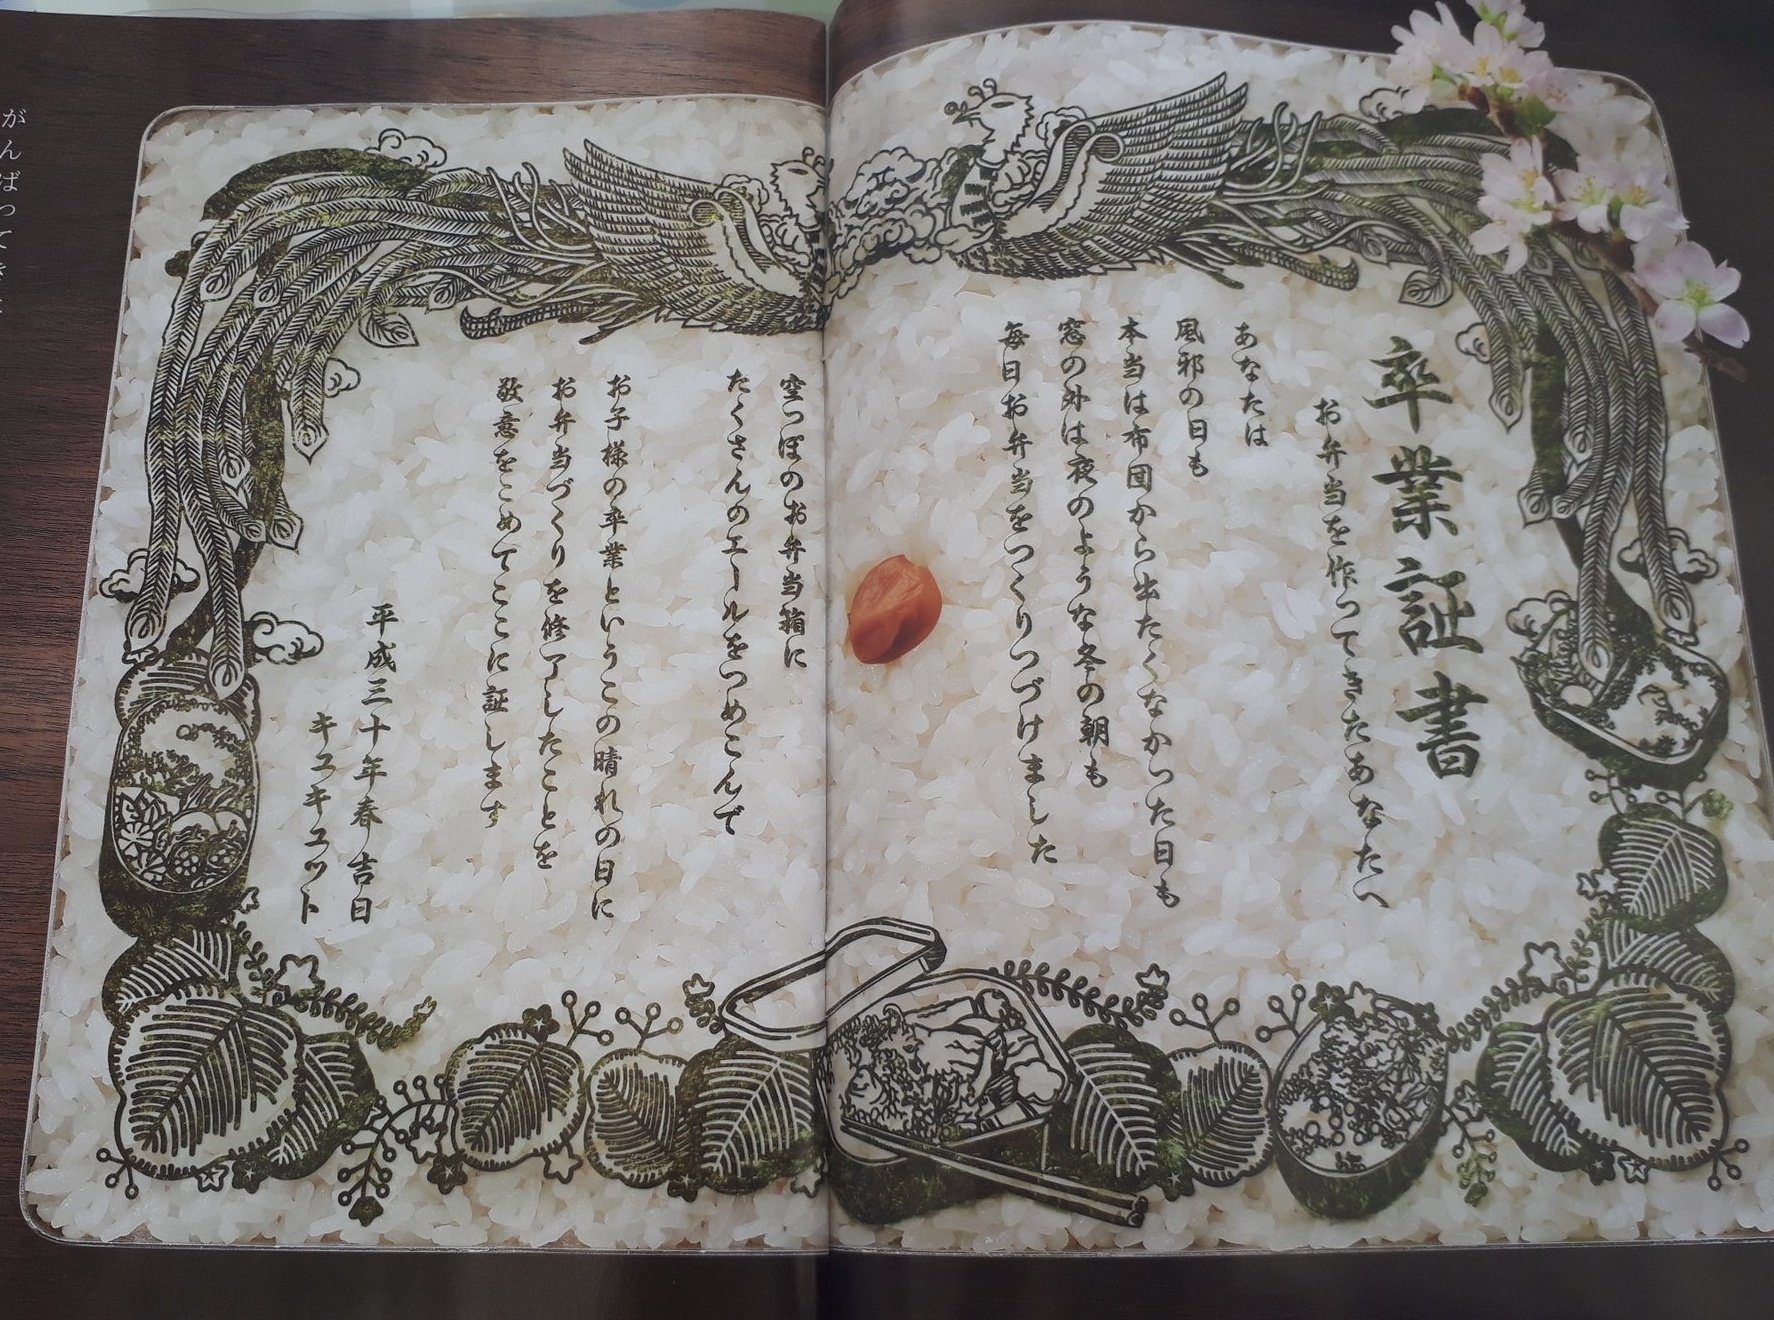 卒業証書
お弁当を作ってきたあなたへ
あなたは
風邪の日も
本当は布団から出たくなかった日も
窓の外は夜のような冬の朝も
毎日お弁当をつくりつづけました
空っぽのお弁当箱に
たくさんのエールをつめこんで
お子様の卒業というこの晴れの日に
お弁当づくりを修了したことを
敬意をこめてここに証します
平成三十年春吉日
キユキユット
がんばってき